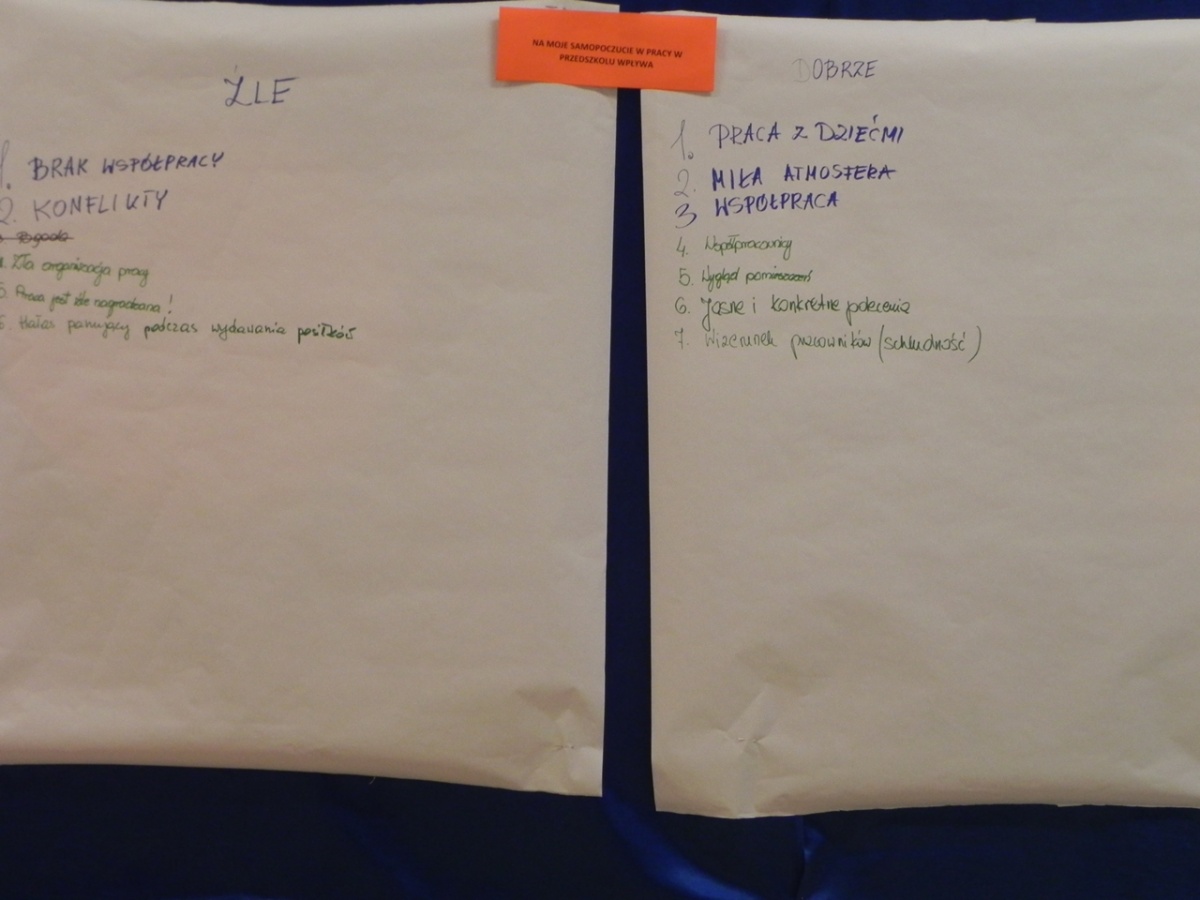 NA MOJE SAMOPOCZUCIE W PRACY W
PRZEDSZKOLU WPŁYWA
ŹLE
1. BRAK WSPÓŁPRACY
2. KONFLIKTY
Zła organizacja pracy
5. Praca jest źle nagradzana!
6. Hałas panujący podczas wydawania posiłków
DOBRZE
1. PRACA Z DZIEĆMI
2. MIŁA ATMOSFERA
3 WSPÓŁPRACA
4. Współpracownicy
5. Wygląd pomieszczeń
6. Jasne i konkretne polecenia
7. Wizerunek pracowników (schludność)